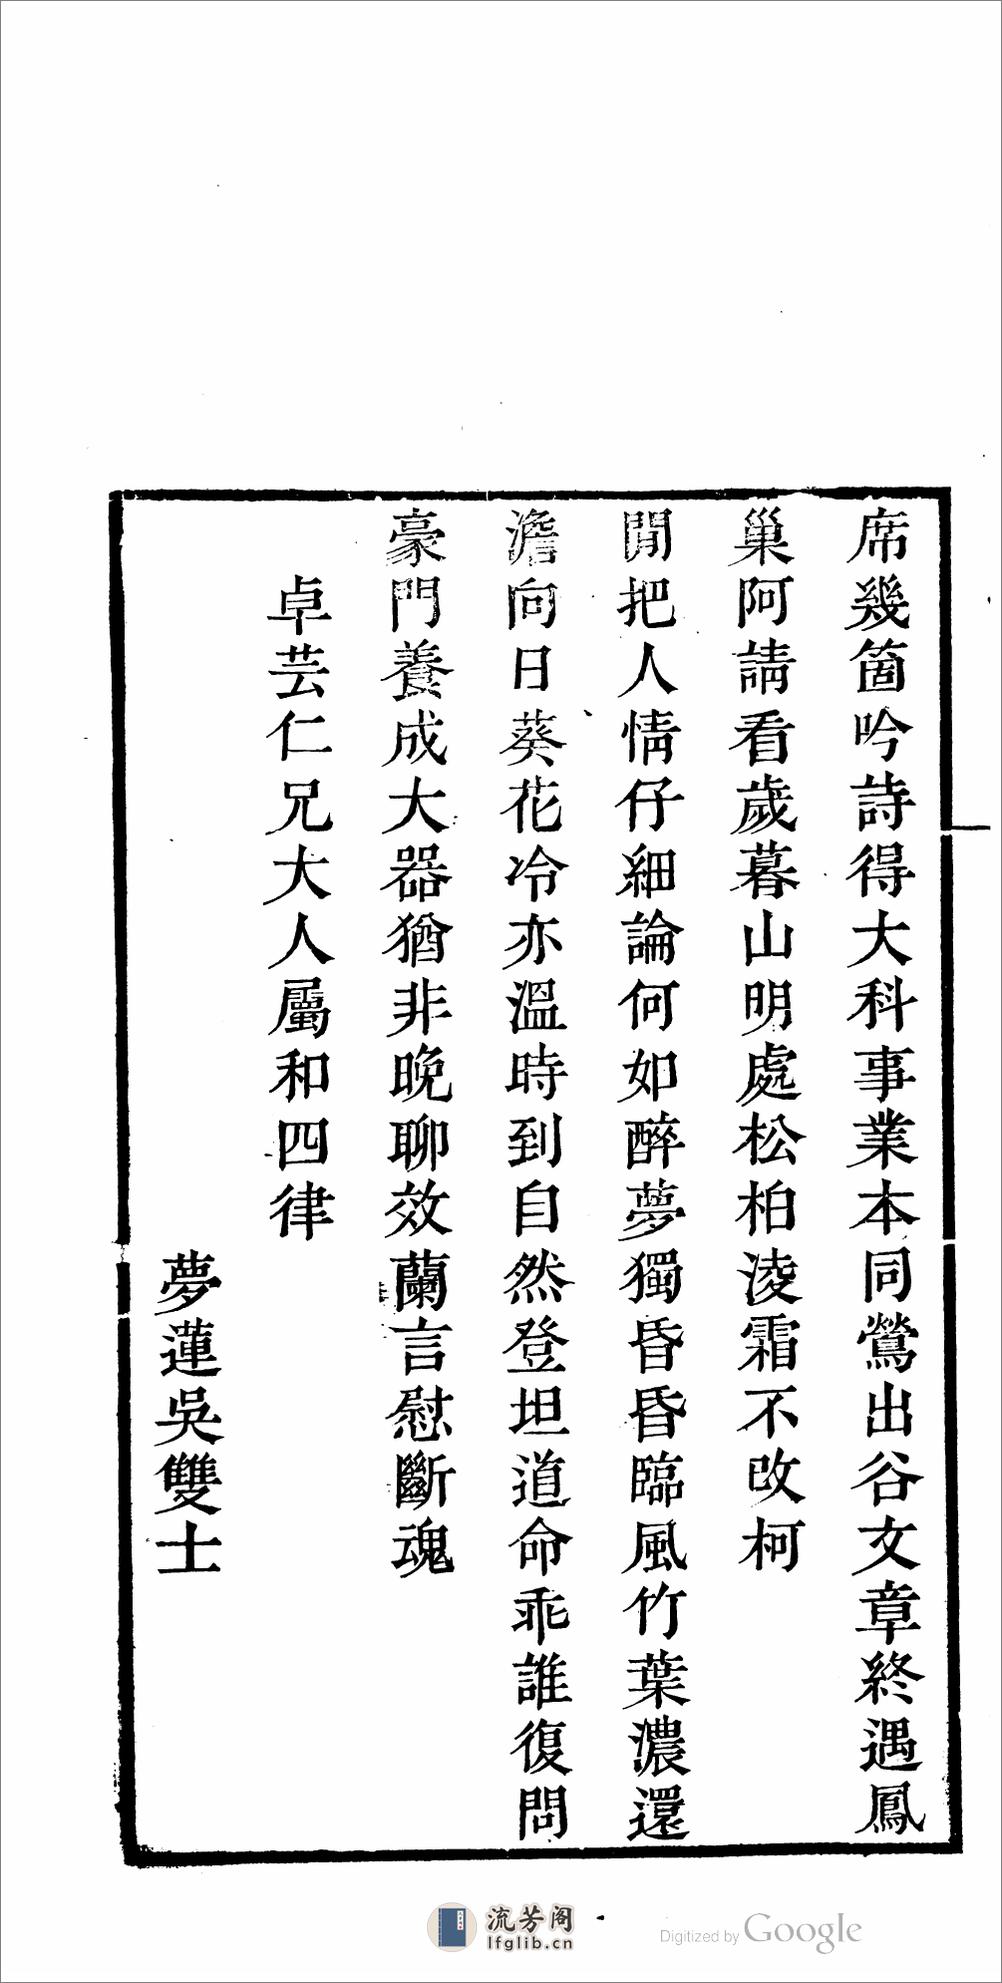 席幾箇吟詩得大科事業本同鶯出谷文章終遇鳳
巢阿請看歲暮山明處松柏淩霜不改柯
閒把人情仔細論何如醉夢獨昏昏臨風竹葉濃還
澹向日葵花冷亦溫時到自然登坦道命乖誰復問
豪門養成大器猶非晚聊效蘭言慰斷魂
卓芸仁兄大人屬和四律
夢蓮吳雙士
流芳阁
lfglib.cn
Digitized by Google